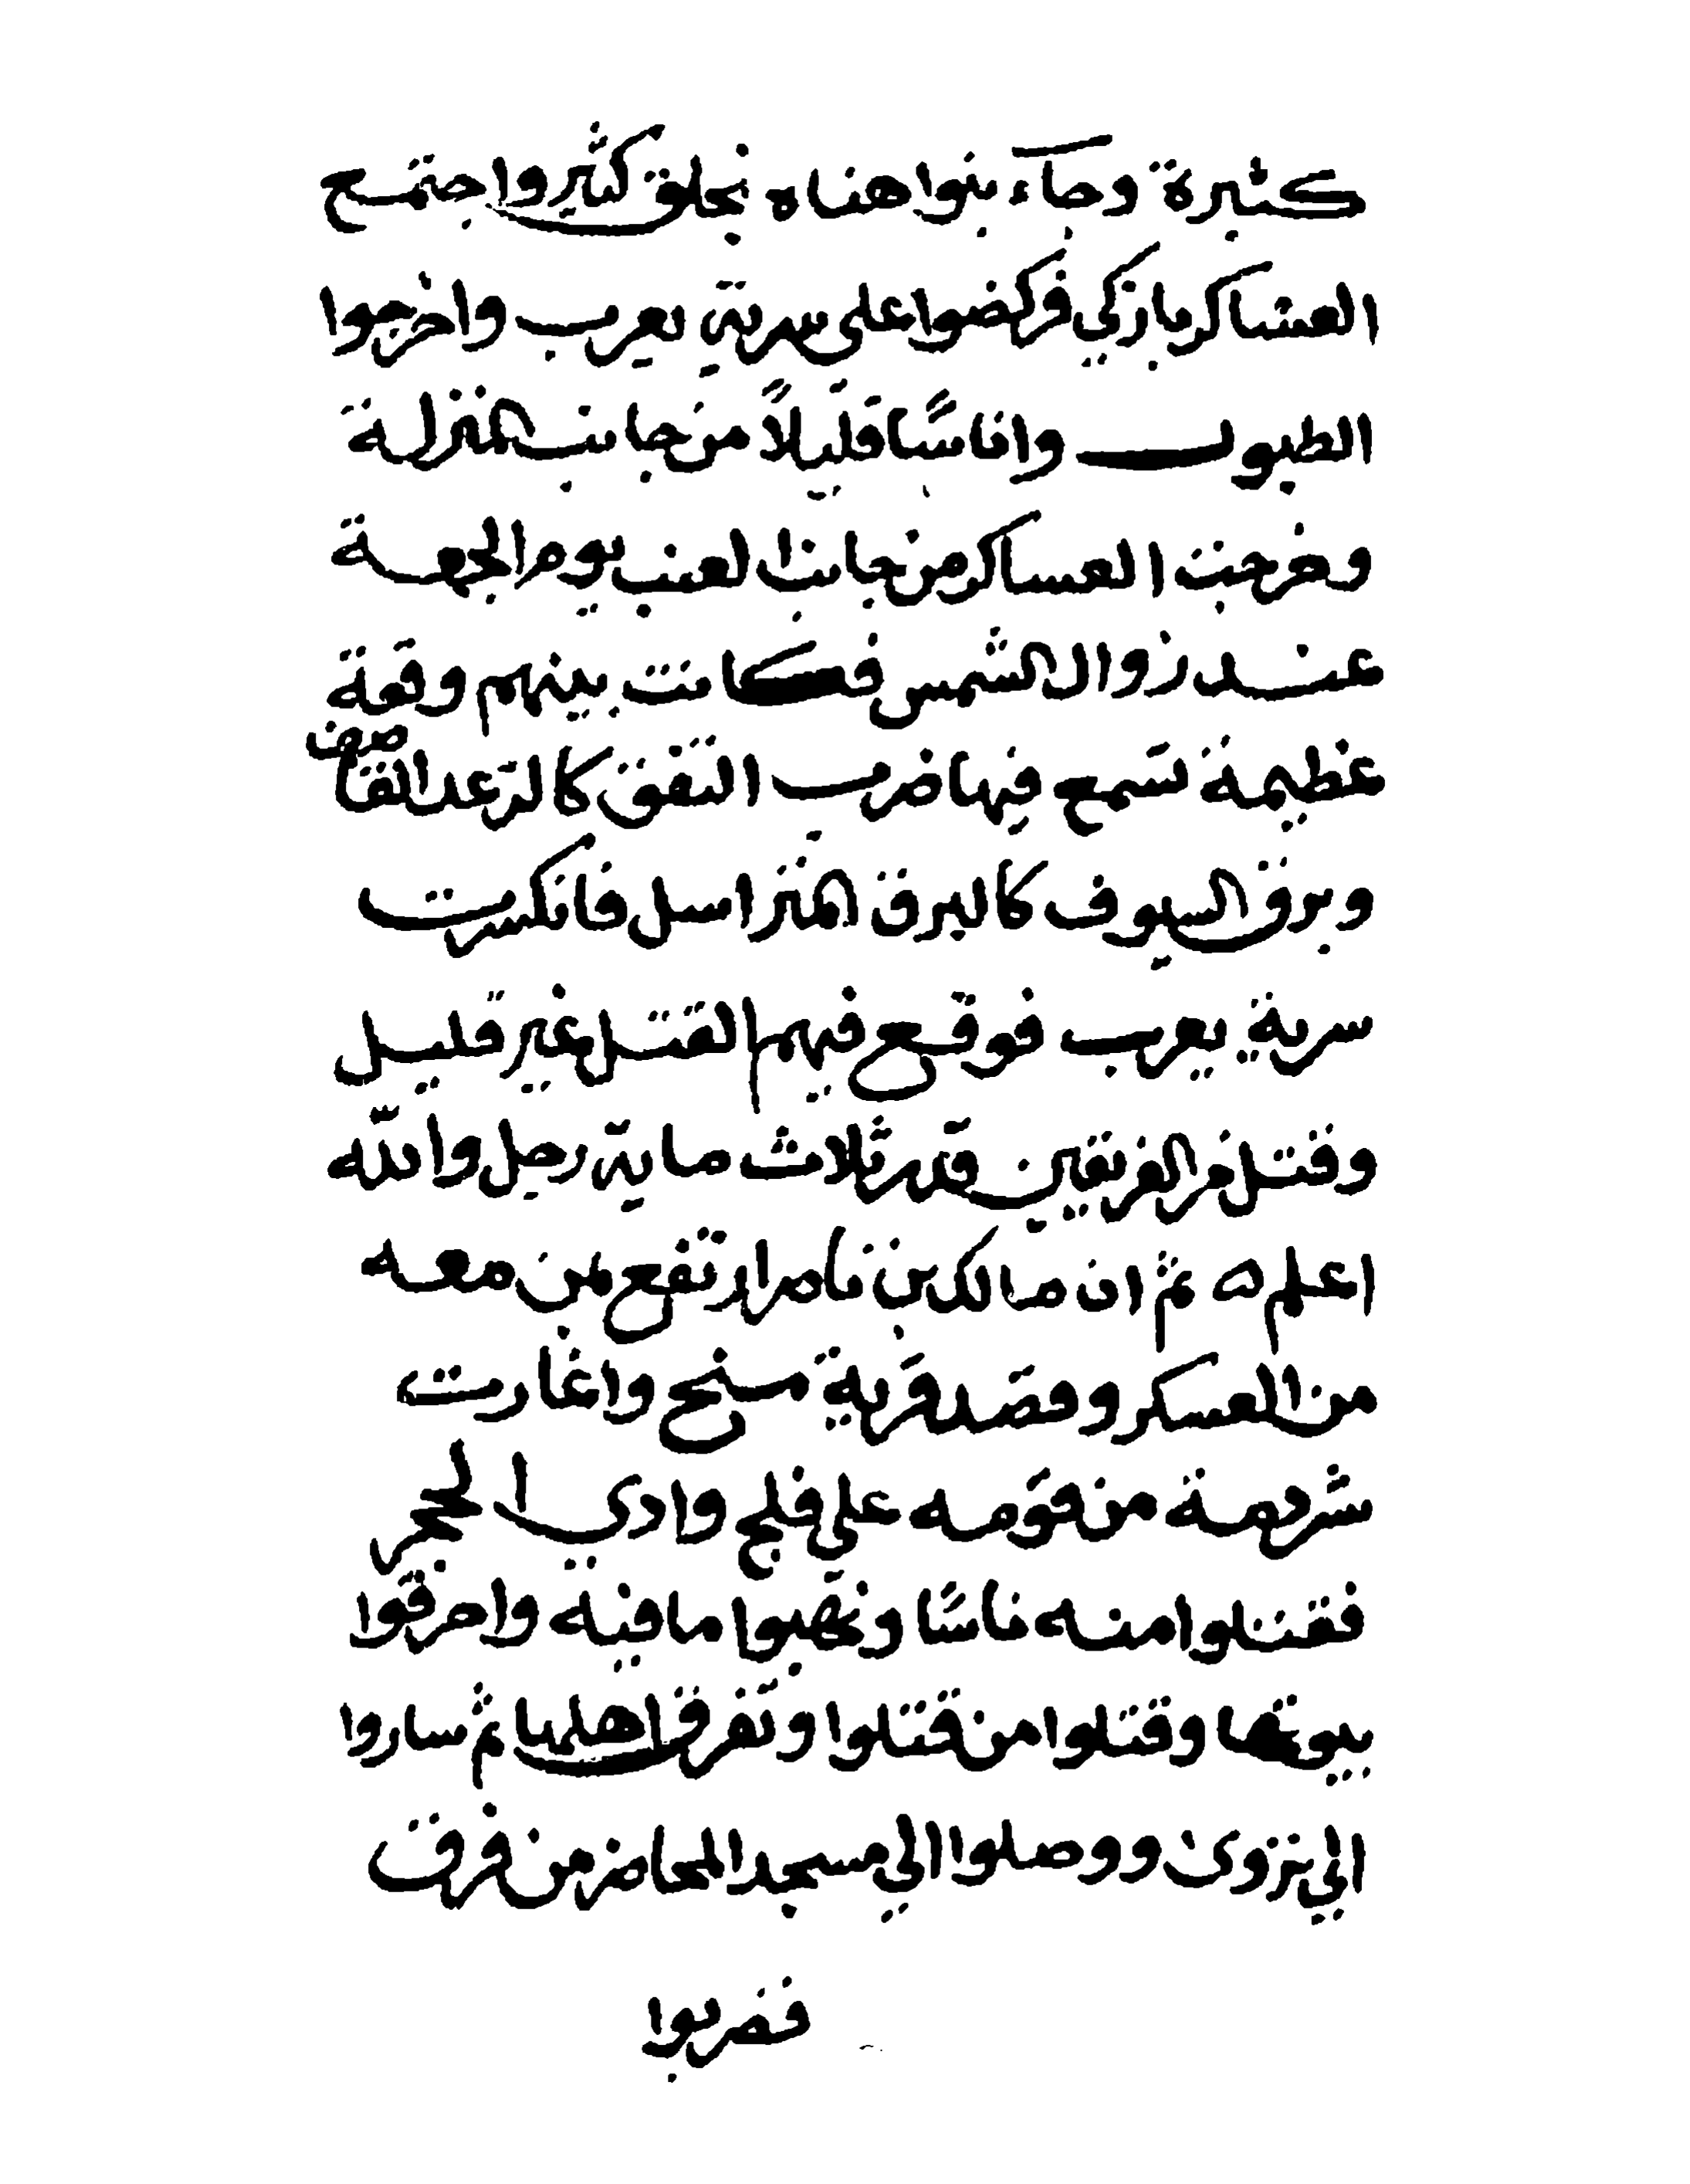 كثيرة وجآء بنوا هناه بخلق كثير واجتمع
العساكر بازكي فركضوا على سرية يعرب واخرجوا
الطبول واناسًا قليلاً من جانب المنزلة
وخرجت العساكر من جانب العنب يوم الجمعة
عند زوال الشمس فكانت بينهم وقعة
عظيمة تسمع فيها ضرب التفق كالرعد القاصف
وبرق السيوف كالبرق المتراسل فانكسرت
سرية يعرب فوقع فيهم القتل غير قليل
وقتل من الفريقين قدر ثلاث ماية رجل والله
اعلم ه ثم ان مالك بن ناصر ارتفع بمن معه
من العسكر وقصد قرية منح واغارت
شرهمة من قومه على فلج وادي الحجر
فقتلوا منه ناسًا ونهبوا ما فيه واحرقوا
بيوتها وقتلوا من قتلوا وتفرق اهلها ثم ساروا
الي نزوى ووصلوا الي مسجد المخاض من فرق
فضربوا